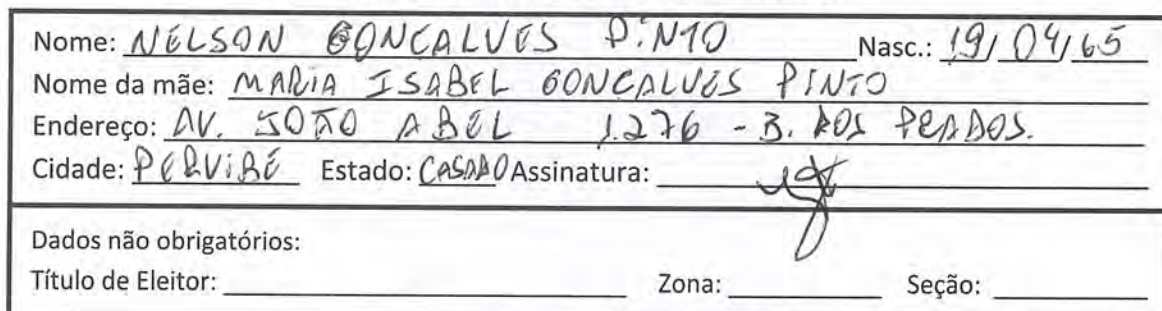 Nome: NELSON GONCALVES PINTO Nasc.: 19/04/65
Nome da mãe: MARIA ISABEL GONCALVES PINTO
Endereço: AV. JOÃO ABEL 1.276 - B. DOS PRADOS.
Cidade: PERUIBÉ Estado: CASADO Assinatura:
Dados não obrigatórios:
Título de Eleitor: Zona: Seção: